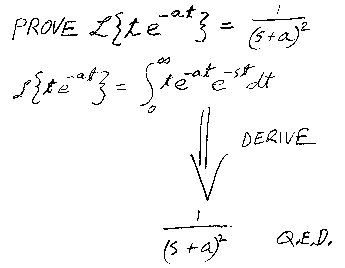 PROVE ℒ{te^{-at}} = 1/(s+a)^2
ℒ{te^{-at}} = ∫_0^∞ te^{-at}e^{-st}dt
DERIVE
1/(s+a)^2 Q.E.D.